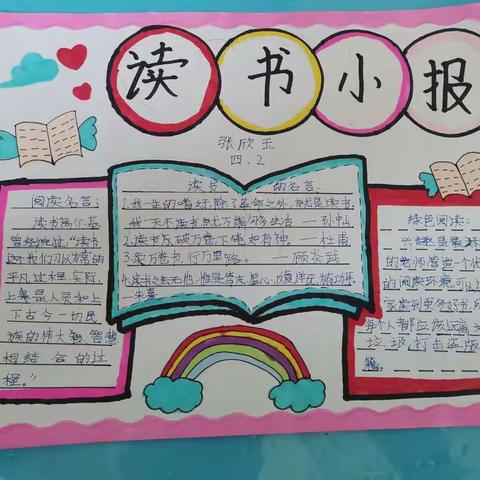 读书小报
张欣玉
四.2
阅读名言:
读书高尔基
曾经说过:“读书
这个我们习以为常的
平凡过程,实际
上是人灵和上
下古今一切民
族的伟大智慧
相结合的过
程。”
读书的名言:
1.我一生的嗜好,除了革命之外,就是读书,
我一天不读书,就不能够生活 ——孙中山
2.读书破万卷下笔如有神 ——杜甫
3.读万卷书,行万里路。 ——顾炎武
4.读书之法无他,惟是笃志虚心,反复详玩,为功耳。
——朱熹
绿色阅读:
兴趣是最
的老师营造一个优
的阅读环境可以
家读到更多好书,所
每个人都应该远离
垃圾,打击盗版
籍。